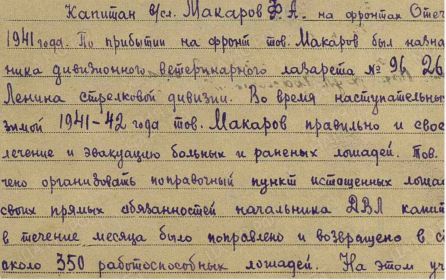 Капитан в/сл. Макаров Ф.А. на фронтах Отеч
1941 года. По прибытии на фронт тов. Макаров был назна
ника дивизионного ветеринарного лазарета № 96 26
Ленина стрелковой дивизии. Во время наступательны
зимой 1941-42 года тов. Макаров правильно и свое
лечение и эвакуацию больных и раненых лошадей. Тов.
чено организовать поправочный пункт истощенных лоша
своих прямых обязанностей начальника ДВЛ капит
в течение месяца было поправлено и возвращено в с
около 350 работоспособных лошадей. На этом у